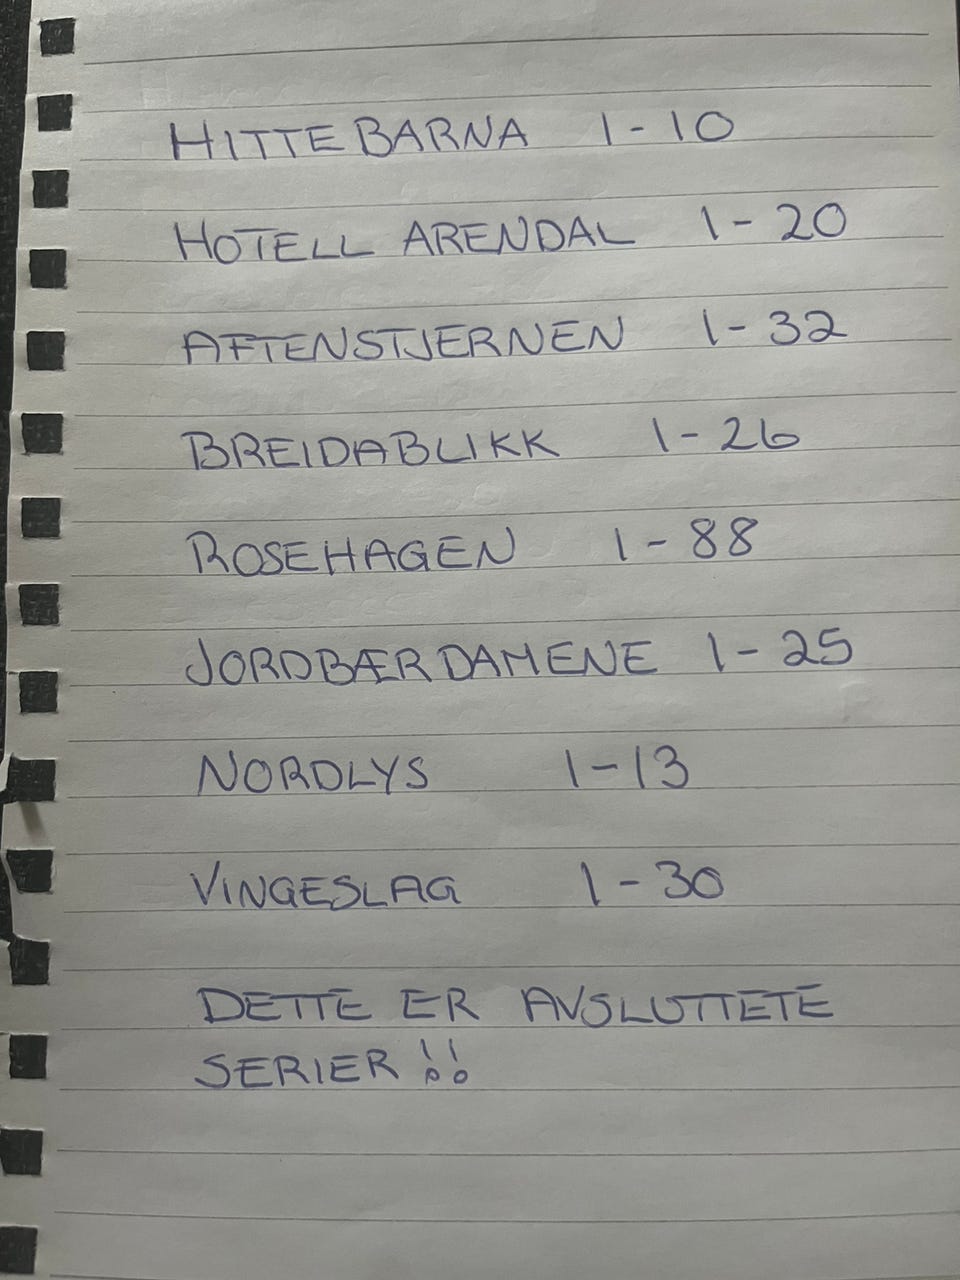 HITTEBARNA 1-10
HOTELL ARENDAL 1-20
AFTENSTJERNEN 1-32
BREIDABLIKK 1-26
ROSEHAGEN 1-88
JORDBÆRDAMENE 1-25
NORDLYS 1-13
VINGESLAG 1-30
DETTE ER AVSLUTTETE
SERIER !!